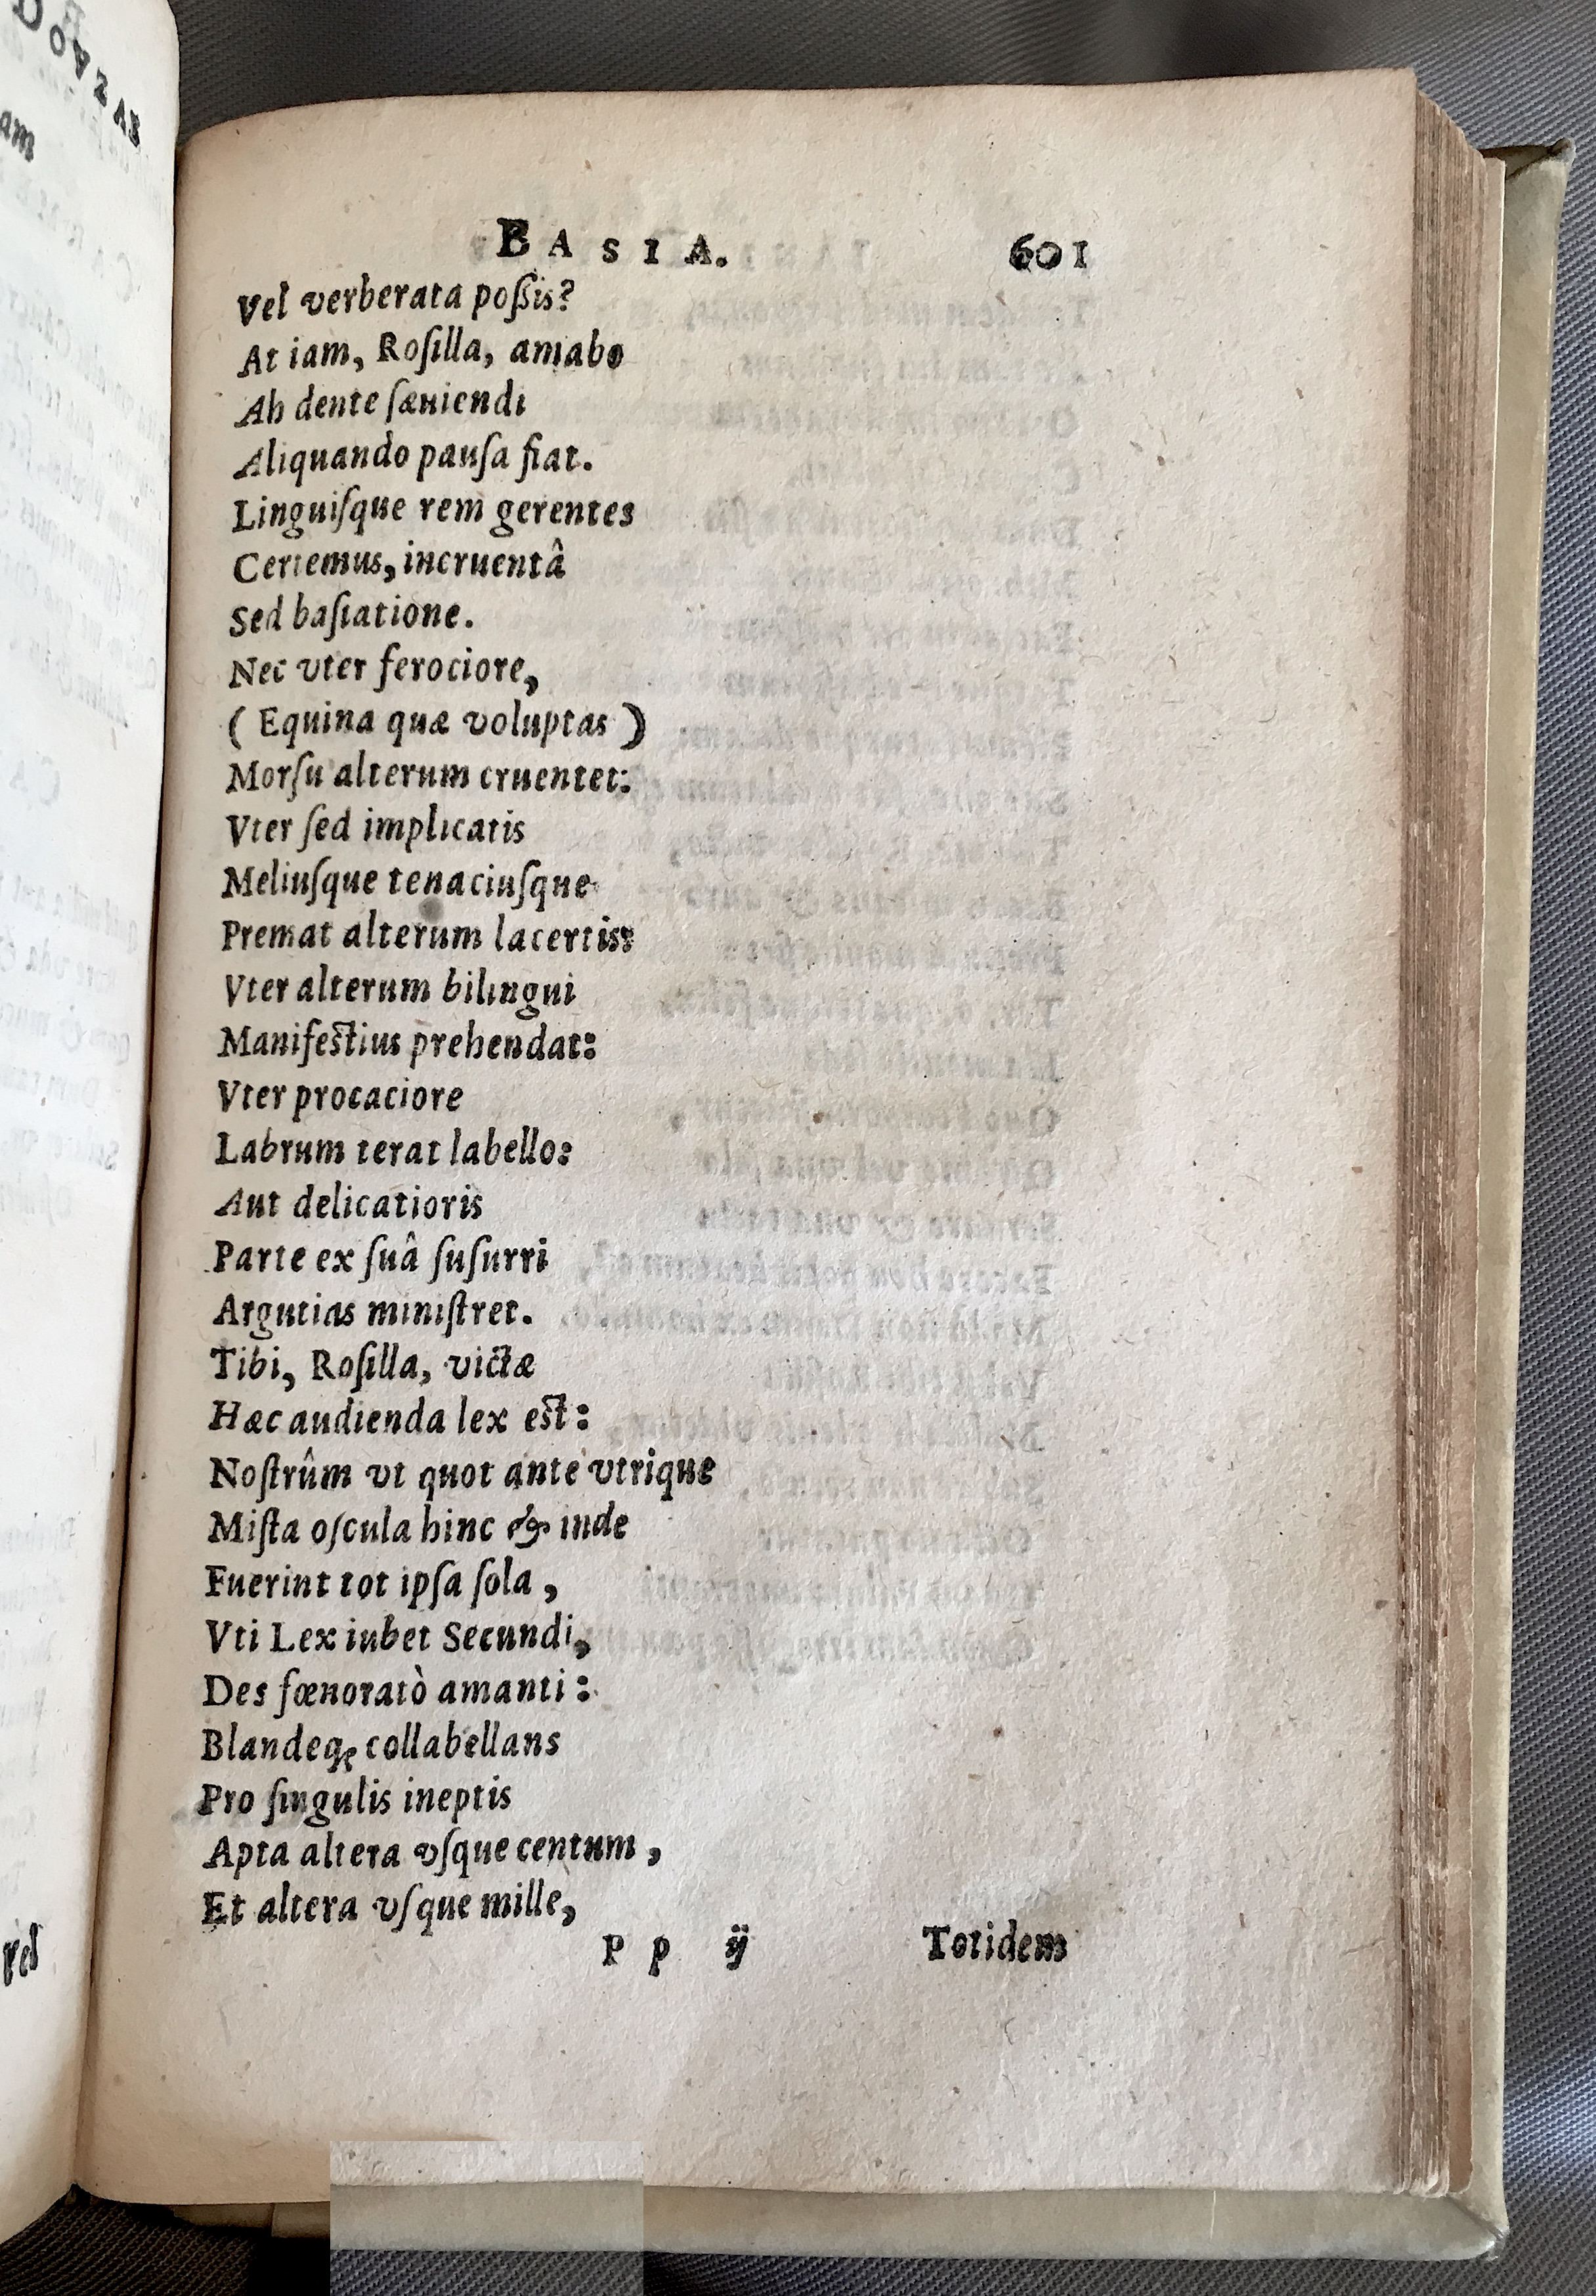 BASIA. 601
Vel verberata poſsis?
At iam, Roſilla, amabo
Ah dente ſæuiendi
Aliquando pauſa fiat.
Linguiſque rem gerentes
Certemus, incruentâ
Sed baſiatione.
Nec vter ferociore,
( Equina quæ voluptas )
Morſu alterum cruentet:
Vter ſed implicatis
Meliuſque tenaciuſque
Premat alterum lacertis:
Vter alterum bilingui
Manifeſtius prehendat:
Vter procaciore
Labrum terat labello:
Aut delicatioris
Parte ex ſuâ ſuſurri
Argutias miniſtret.
Tibi, Roſilla, victæ
Hæc audienda lex eſt:
Noſtrûm vt quot ante vtrique
Miſta oſcula hinc & inde
Fuerint tot ipſa ſola,
Vti Lex iubet Secundi,
Des fœnoratò amanti:
Blandeq; collabellans
Pro ſingulis ineptis
Apta altera vſque centum,
Et altera vſque mille,
Pp ij Totidem
am
vel